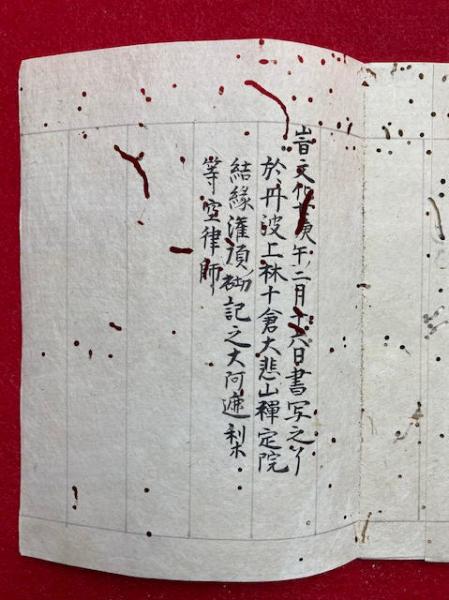 峕文化七庚午二月十六日書写之了
於丹波上林十倉大悲山禪定院
結縁灌頂砌記之大阿遮梨
等空律師